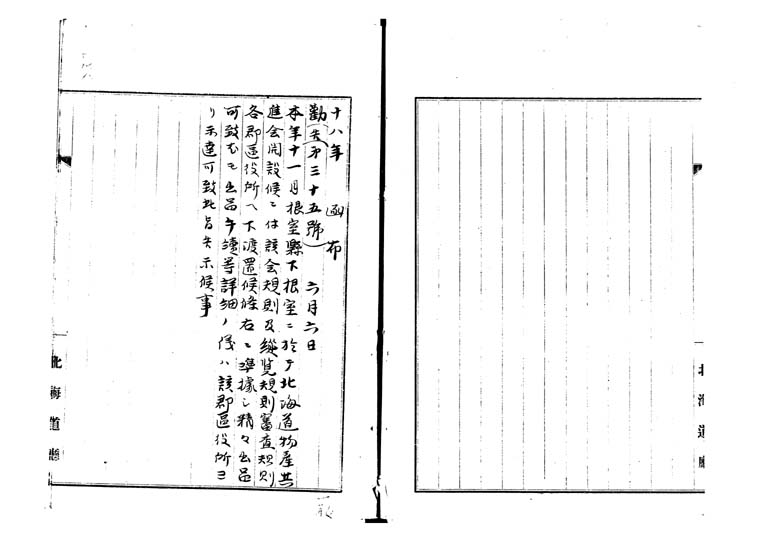 十八年 函布
勸(告第三十五號) 六月六日
本年十一月根室縣下根室ニ於テ北海道物產共
進会開設候ニ付該会規則及縱覧規則審査規則
各郡區役所ヘ下渡置候條右ニ準據シ精々出品
可致尤モ出品手續等詳細ノ儀ハ該郡區役所ヨ
リ示達可致此旨告示候事
北海道廳
北海道廳